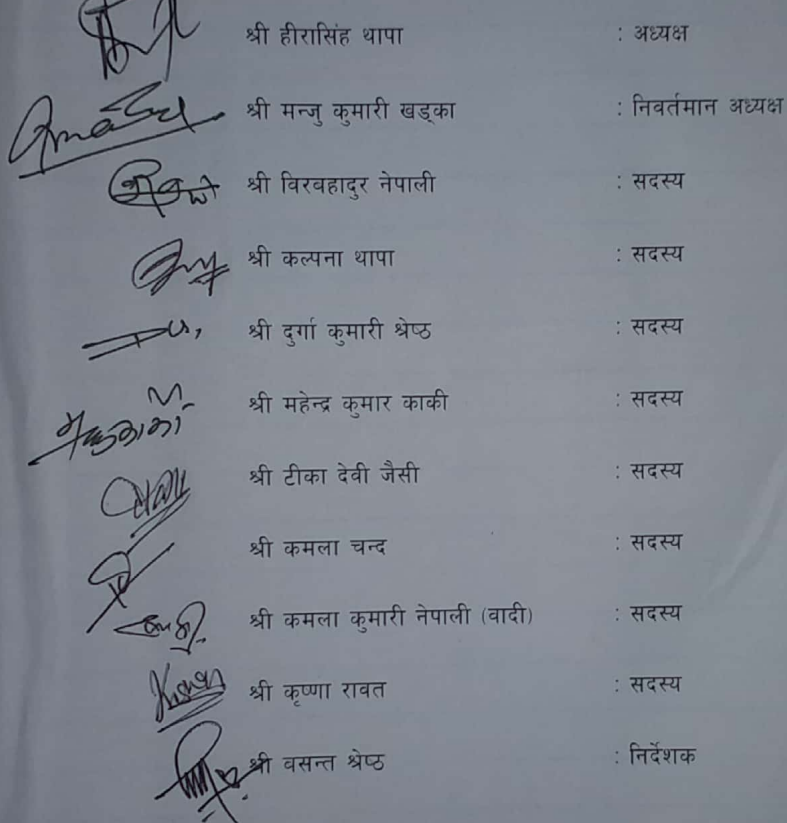 श्री हीरासिंह थापा : अध्यक्ष
श्री मन्जु कुमारी खड्का : निवर्तमान अध्यक्ष
श्री विरबहादुर नेपाली : सदस्य
श्री कल्पना थापा : सदस्य
श्री दुर्गा कुमारी श्रेष्ठ : सदस्य
श्री महेन्द्र कुमार काकी : सदस्य
श्री टीका देवी जैसी : सदस्य
श्री कमला चन्द : सदस्य
श्री कमला कुमारी नेपाली (वादी) : सदस्य
श्री कृष्णा रावत : सदस्य
श्री वसन्त श्रेष्ठ : निर्देशक